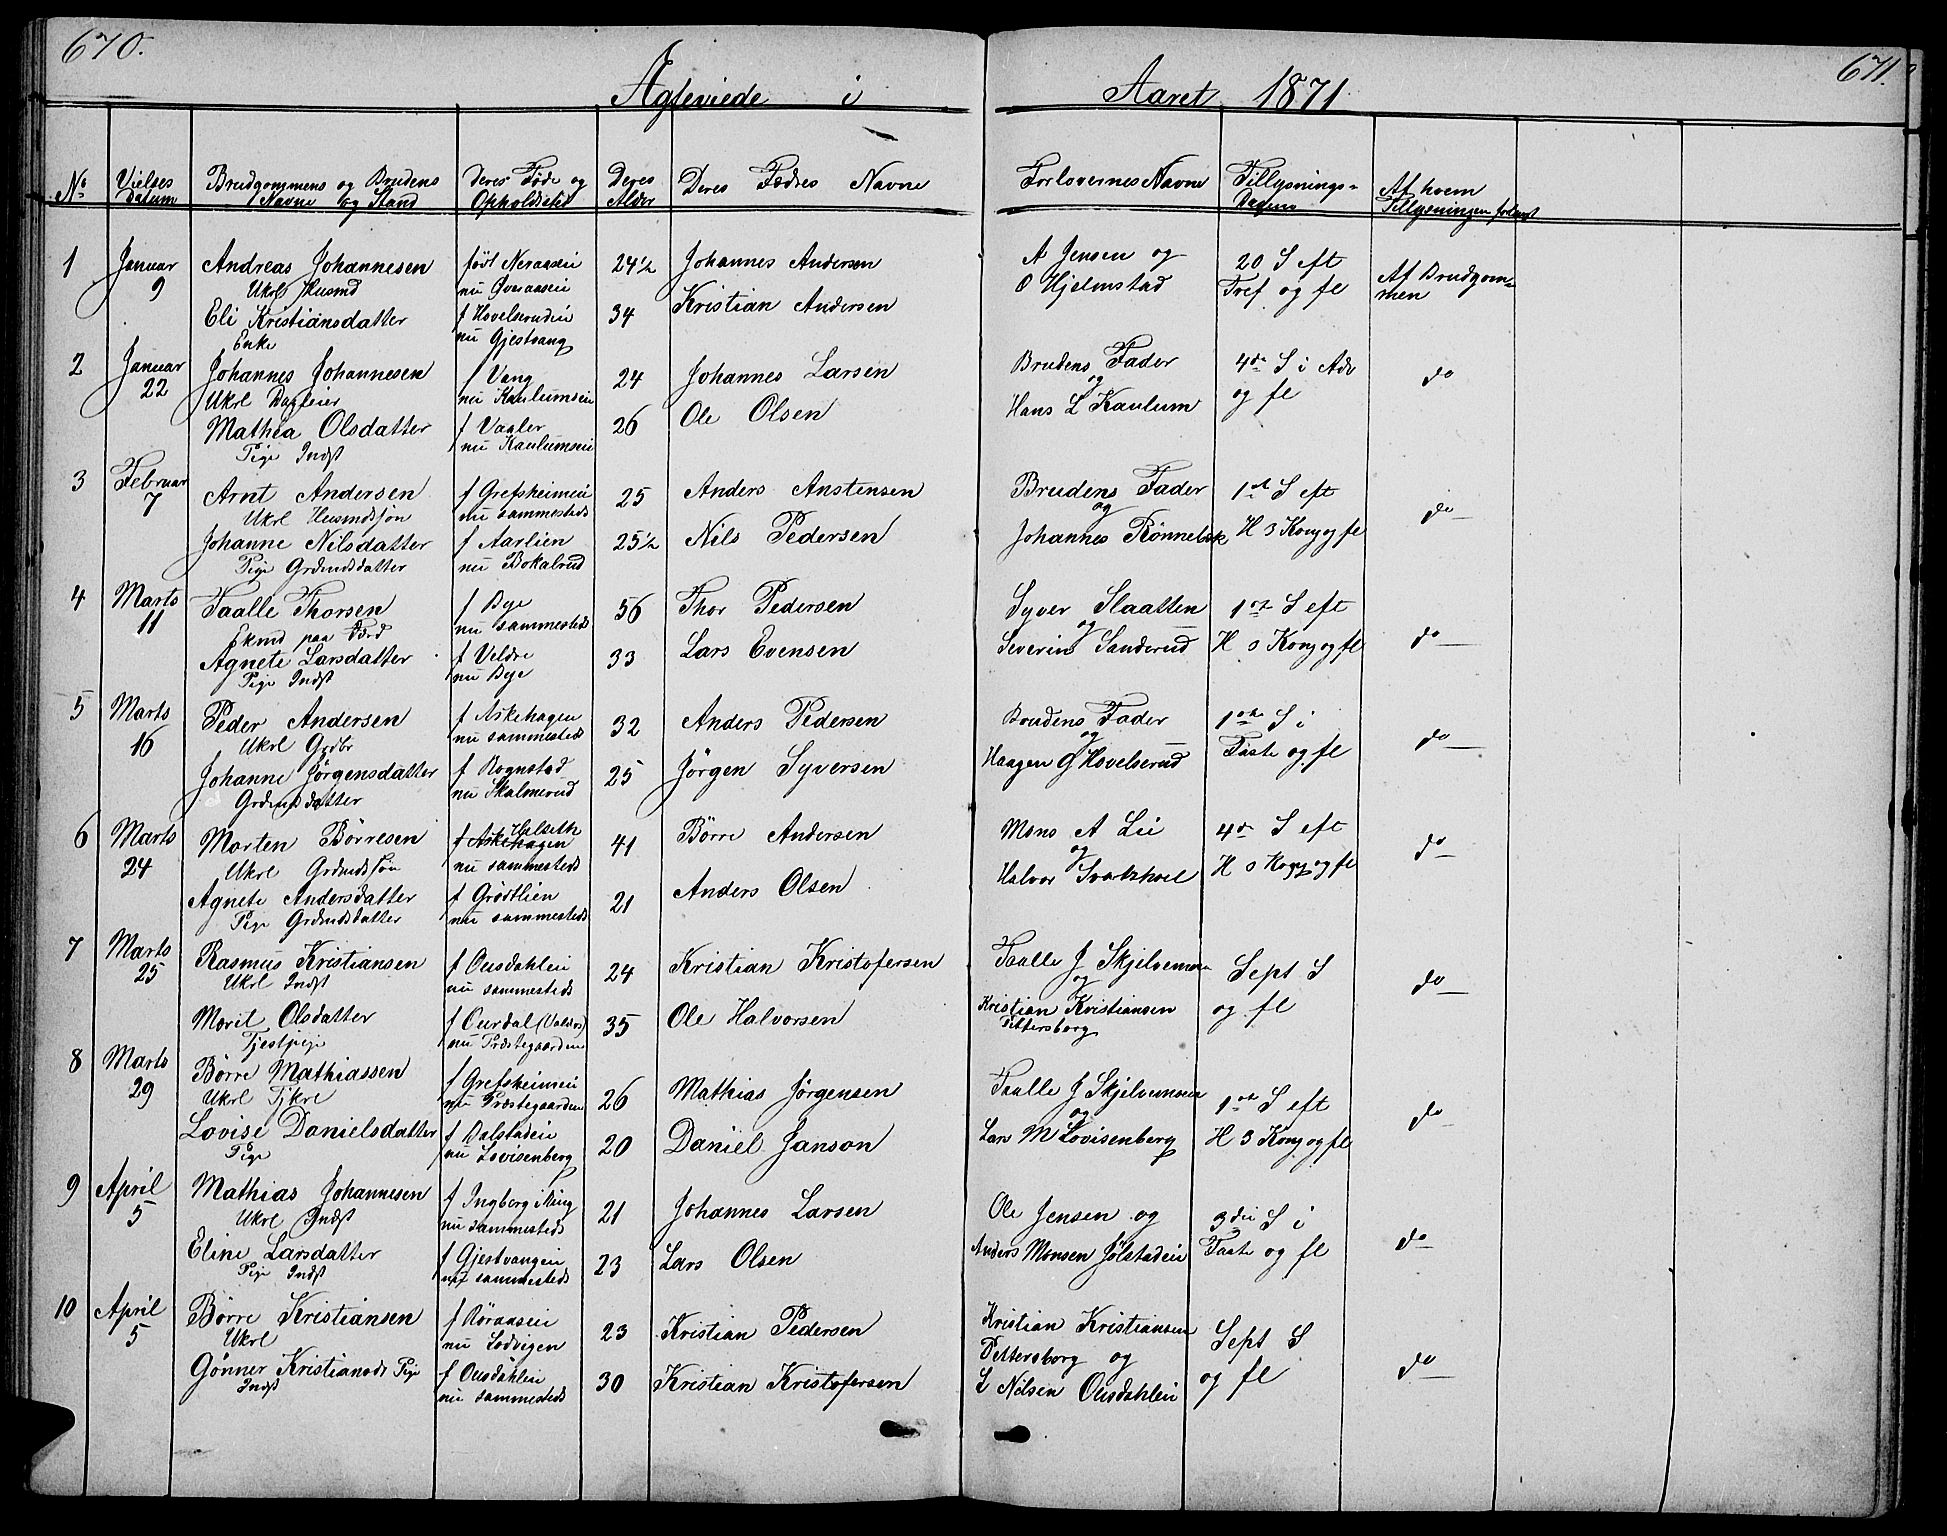 670.
671.
Ægteviede i Aaret 1871
No
Vielses Datum
Brudgommens og Brudens Navne og Stand
Deres Føde og Opholdssted
Deres Alder
Deres Fædres Navne
Forlovernes Navne
Tillysnings-Dagene
Af hvem Tillysningen forlangt
1 Januar 9
Andreas Johannesen
Ukrl Husmd
født Neraaseie
nu Øveraaseie
24½
Johannes Andersen
A Jensen og
O Hjelmstad
20 S eft
Tref og fl
Af Brudgommen
Eli Kristiansdatter
Enke
f Hovelsrudeie
nu Gjestvang
34
Kristian Andersen
2 Januar 22
Johannes Johannesen
Ukrl Dagleier
f Vang
nu Kaulumseie
24
Johannes Larsen
Brudens Fader
og
Hans L Kaulum
4de S i Adv
og fl
do
Mathea Olsdatter
Pige Indst
f Vaaler
nu Kaulumseie
26
Ole Olsen
3 Februar 7
Arnt Andersen
Ukrl Husmdssøn
f Grefsheimeie
nu sammesteds
25
Anders Anstensen
Brudens Fader
og
Johannes Rönnebek
1st S eft
H 3 Kong og fl
do
Johanne Nilsdatter
Pige Grdmdsdatter
f Aarlien
nu Bokalrud
25½
Nils Pedersen
4 Marts 11
Taalle Thorsen
Ekmd paa Förd
f Bye
nu sammesteds
56
Thor Pedersen
Syver Slaatten
og
Severin Sanderud
1ste S eft
H 3 Kong og fl
do
Agnete Larsdatter
Pige Indst
f Veldre
nu Bye
33
Lars Evensen
5 Marts 16
Peder Andersen
Ukrl Grdbr
f Askehagen
nu sammesteds
32
Anders Pedersen
Brudens Fader
og
Haagen G Hovelsrud
1ste S i
Faste og fl
do
Johanne Jörgensdatter
Grdmdsdatter
f Rognstad
nu Skalmerud
25
Jörgen Syversen
6 Marts 24
Morten Börresen
Ukrl Grdmdssøn
f Askehagen Helseth
nu sammesteds
41
Börre Andersen
Mons A Lie
og
Halvor Svartshoel
4de S eft
H 3 Kong og fl
do
Agnete Andersdatter
Pige Grdmdsdatter
f Grödtlien
nu sammesteds
21
Anders Olsen
7 Marts 25
Rasmus Kristiansen
Ukrl Indst
f Ousdahleie
nu sammesteds
24
Kristian Kristofersen
Taalle J Skjelvemoen
og
Kristian Kristiansen
Pettersborg
Sept S
og fl
do
Marit Olsdatter
Tjestpige
f Ourdal (Valdrs)
nu Præstegaarden
35
Ole Halvorsen
8 Marts 29
Börre Mathiassen
Ukrl Tjkrl
f Grefsheimeie
nu Præstegaarden
26
Mathias Jörgensen
Taalle J Skjelvemoen
og
Lars M Lovisenberg
1ste S eft
H 3 Kong og fl
do
Lovise Danielsdatter
Pige
f Dalstadeie
nu Lovisenberg
20
Daniel Janson
9 April 5
Mathias Johannesen
Ukrl Indst
f Ingberg i Ring
nu sammesteds
21
Johannes Larsen
Ole Jensen og
Anders Monsen Jölstadeie
3die S i
Faste og fl
do
Eline Larsdatter
Pige Indst
f Gjestvangeie
nu sammesteds
23
Lars Olsen
10 April 5
Börre Kristiansen
Ukrl
f Röraaseie
nu Lodvigen
23
Kristian Pedersen
Kristian Kristiansen
Pettersborg og
L Nilsen Ousdahleie
Sept S
og fl
do
Gönner Kristiansdr Pige
Indst
f Ousdahleie
nu sammesteds
30
Kristian Kristofersen